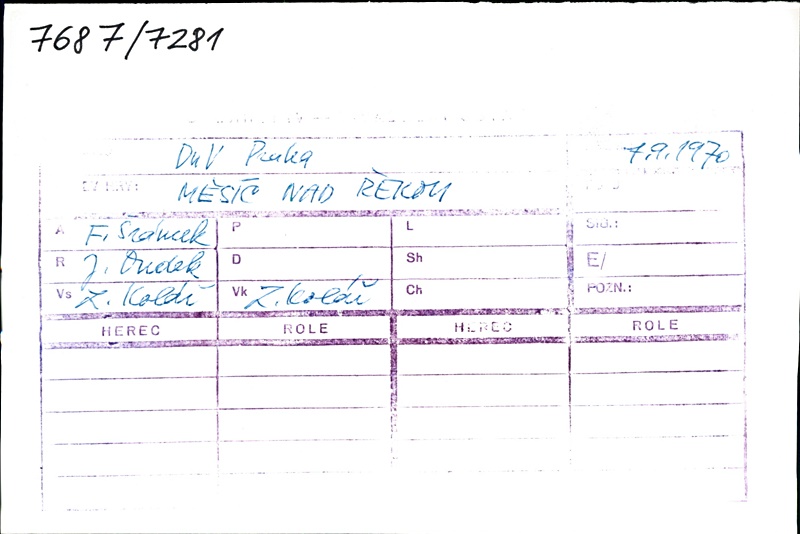 7687/7281
DnV Praha 7.9.1970
MĚSÍC NAD ŘEKOU
A F. Šrámek P L
R J. Ondek D Sh E/
Vs Z. Kolář Vk Z. Kolář Ch POZN.:
HEREC ROLE HEREC ROLE